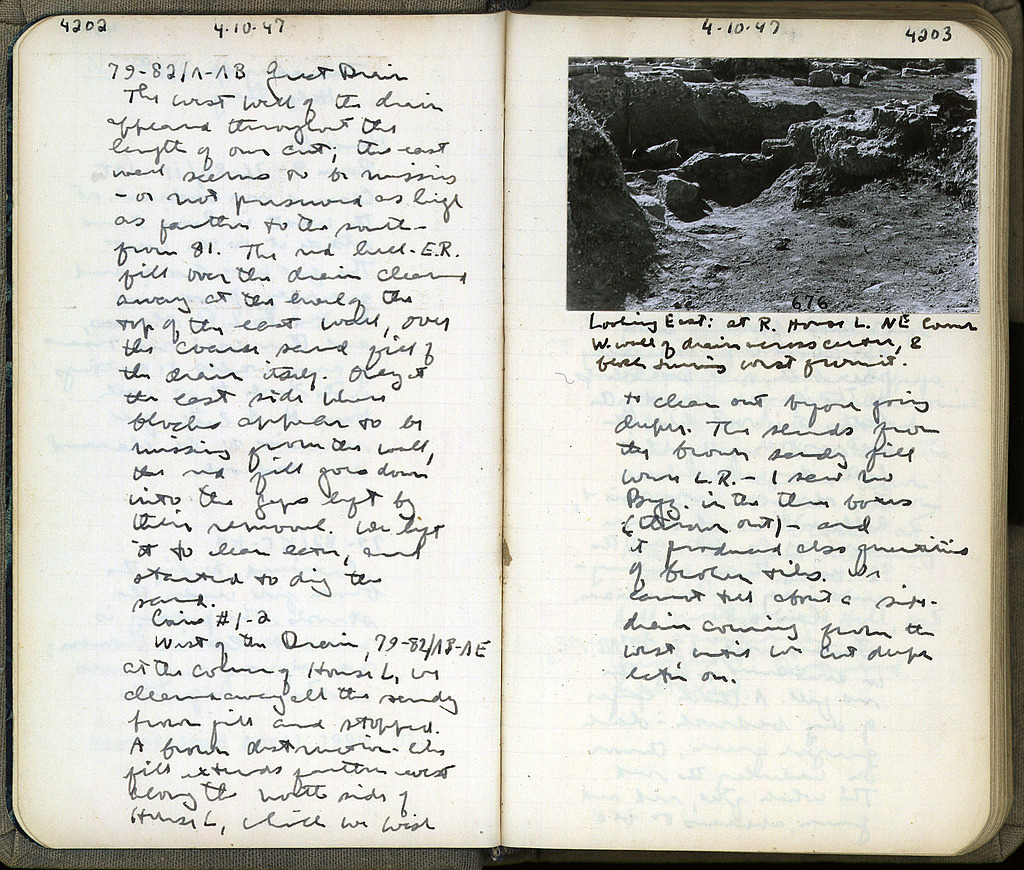 4202 4·10·47
79-82/Λ-ΛΒ Great Drain
The west wall of the drain
appeared throughout the
length of our cut; the east
wall seems to be missing
- or not preserved as high
as farther to the south -
from 81. The red -E.R.
fill over the drain cleaned
away at the level of the
top of the east wall, over
the coarse sand fill of
the drain itself. Only at
the east side where
blocks appear to be
missing from the wall,
the red fill goes down
into the gaps left by
their removal. We left
it to clean later, and
started to dig the
sand.
Coins #1-2
West of the Drain, 79-82/ΛΒ-ΛΕ
at the corner of House L, we
cleaned away all the sandy
brown fill and stopped.
A brown destruction-like
fill extends farther west
along the north side of
House L, which we wish
4·10·47 4203
676
Looking East: at R. House L. NE Corner
W. wall of drain across center, &
 west from it.
to clean out before going
deeper. The sherds from
the brown sandy fill
were L.R. - I saw no
Byz. in the three boxes
(thrown out) - and
it produced also quantities
of broken tiles. We
cannot tell about a side-
drain coming from the
west until we cut deeper
later on.